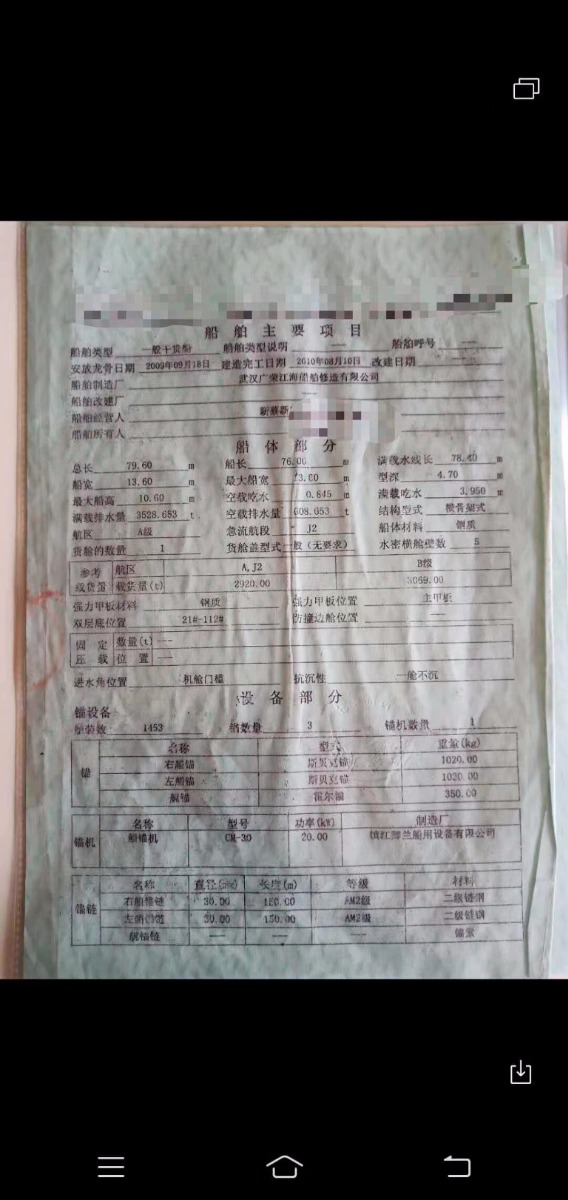 船舶主要项目
船舶类型 一般干货船 船舶类型说明 —— 船舶呼号 ——
安放龙骨日期 2009年09月18日 建造完工日期 2010年08月10日 改建日期 ——
船舶制造厂 武汉广荣江海船舶修造有限公司
船舶改建厂 ——
船舶经营人
船舶所有人
船体部分
总长 79.60 m 船长 76.00 m 满载水线长 78.40 m
船宽 13.60 m 最大船宽 13.60 m 型深 4.70 m
最大船高 10.60 m 空载吃水 0.845 m 满载吃水 3.950 m
满载排水量 3528.653 t 空载排水量 608.653 t 结构型式 横骨架式
航区 A级 急流航段 J2 船体材料 钢质
货舱的数量 1 货舱盖型式 一般（无要求） 水密横舱壁数 5
参考载货量 航区 A,J2 B级
载货量(t) 2920.00 3069.00
强力甲板材料 钢质 强力甲板位置 主甲板
双层底位置 21#-112# 防撞边舱位置
固定压载 数量(t) ——
位置 ——
进水角位置 机舱门槛 抗沉性 一舱不沉
设备部分
锚设备
舾装数 1453 锚数量 3 锚机数量 1
锚 名称 型号 重量(kg)
右艏锚 斯贝克锚 1020.00
左艏锚 斯贝克锚 1020.00
艉锚 霍尔锚 350.00
锚机 名称 型号 功率(kW) 制造厂
船锚机 CM-30 20.00 船用设备有限公司
锚链 名称 直径(mm) 长度(m) 等级 材料
右艏锚链 30.00 150.00 AM2级 二级链钢
左艏锚链 30.00 150.00 AM2级 二级链钢
艉锚链 —— —— —— 锚索